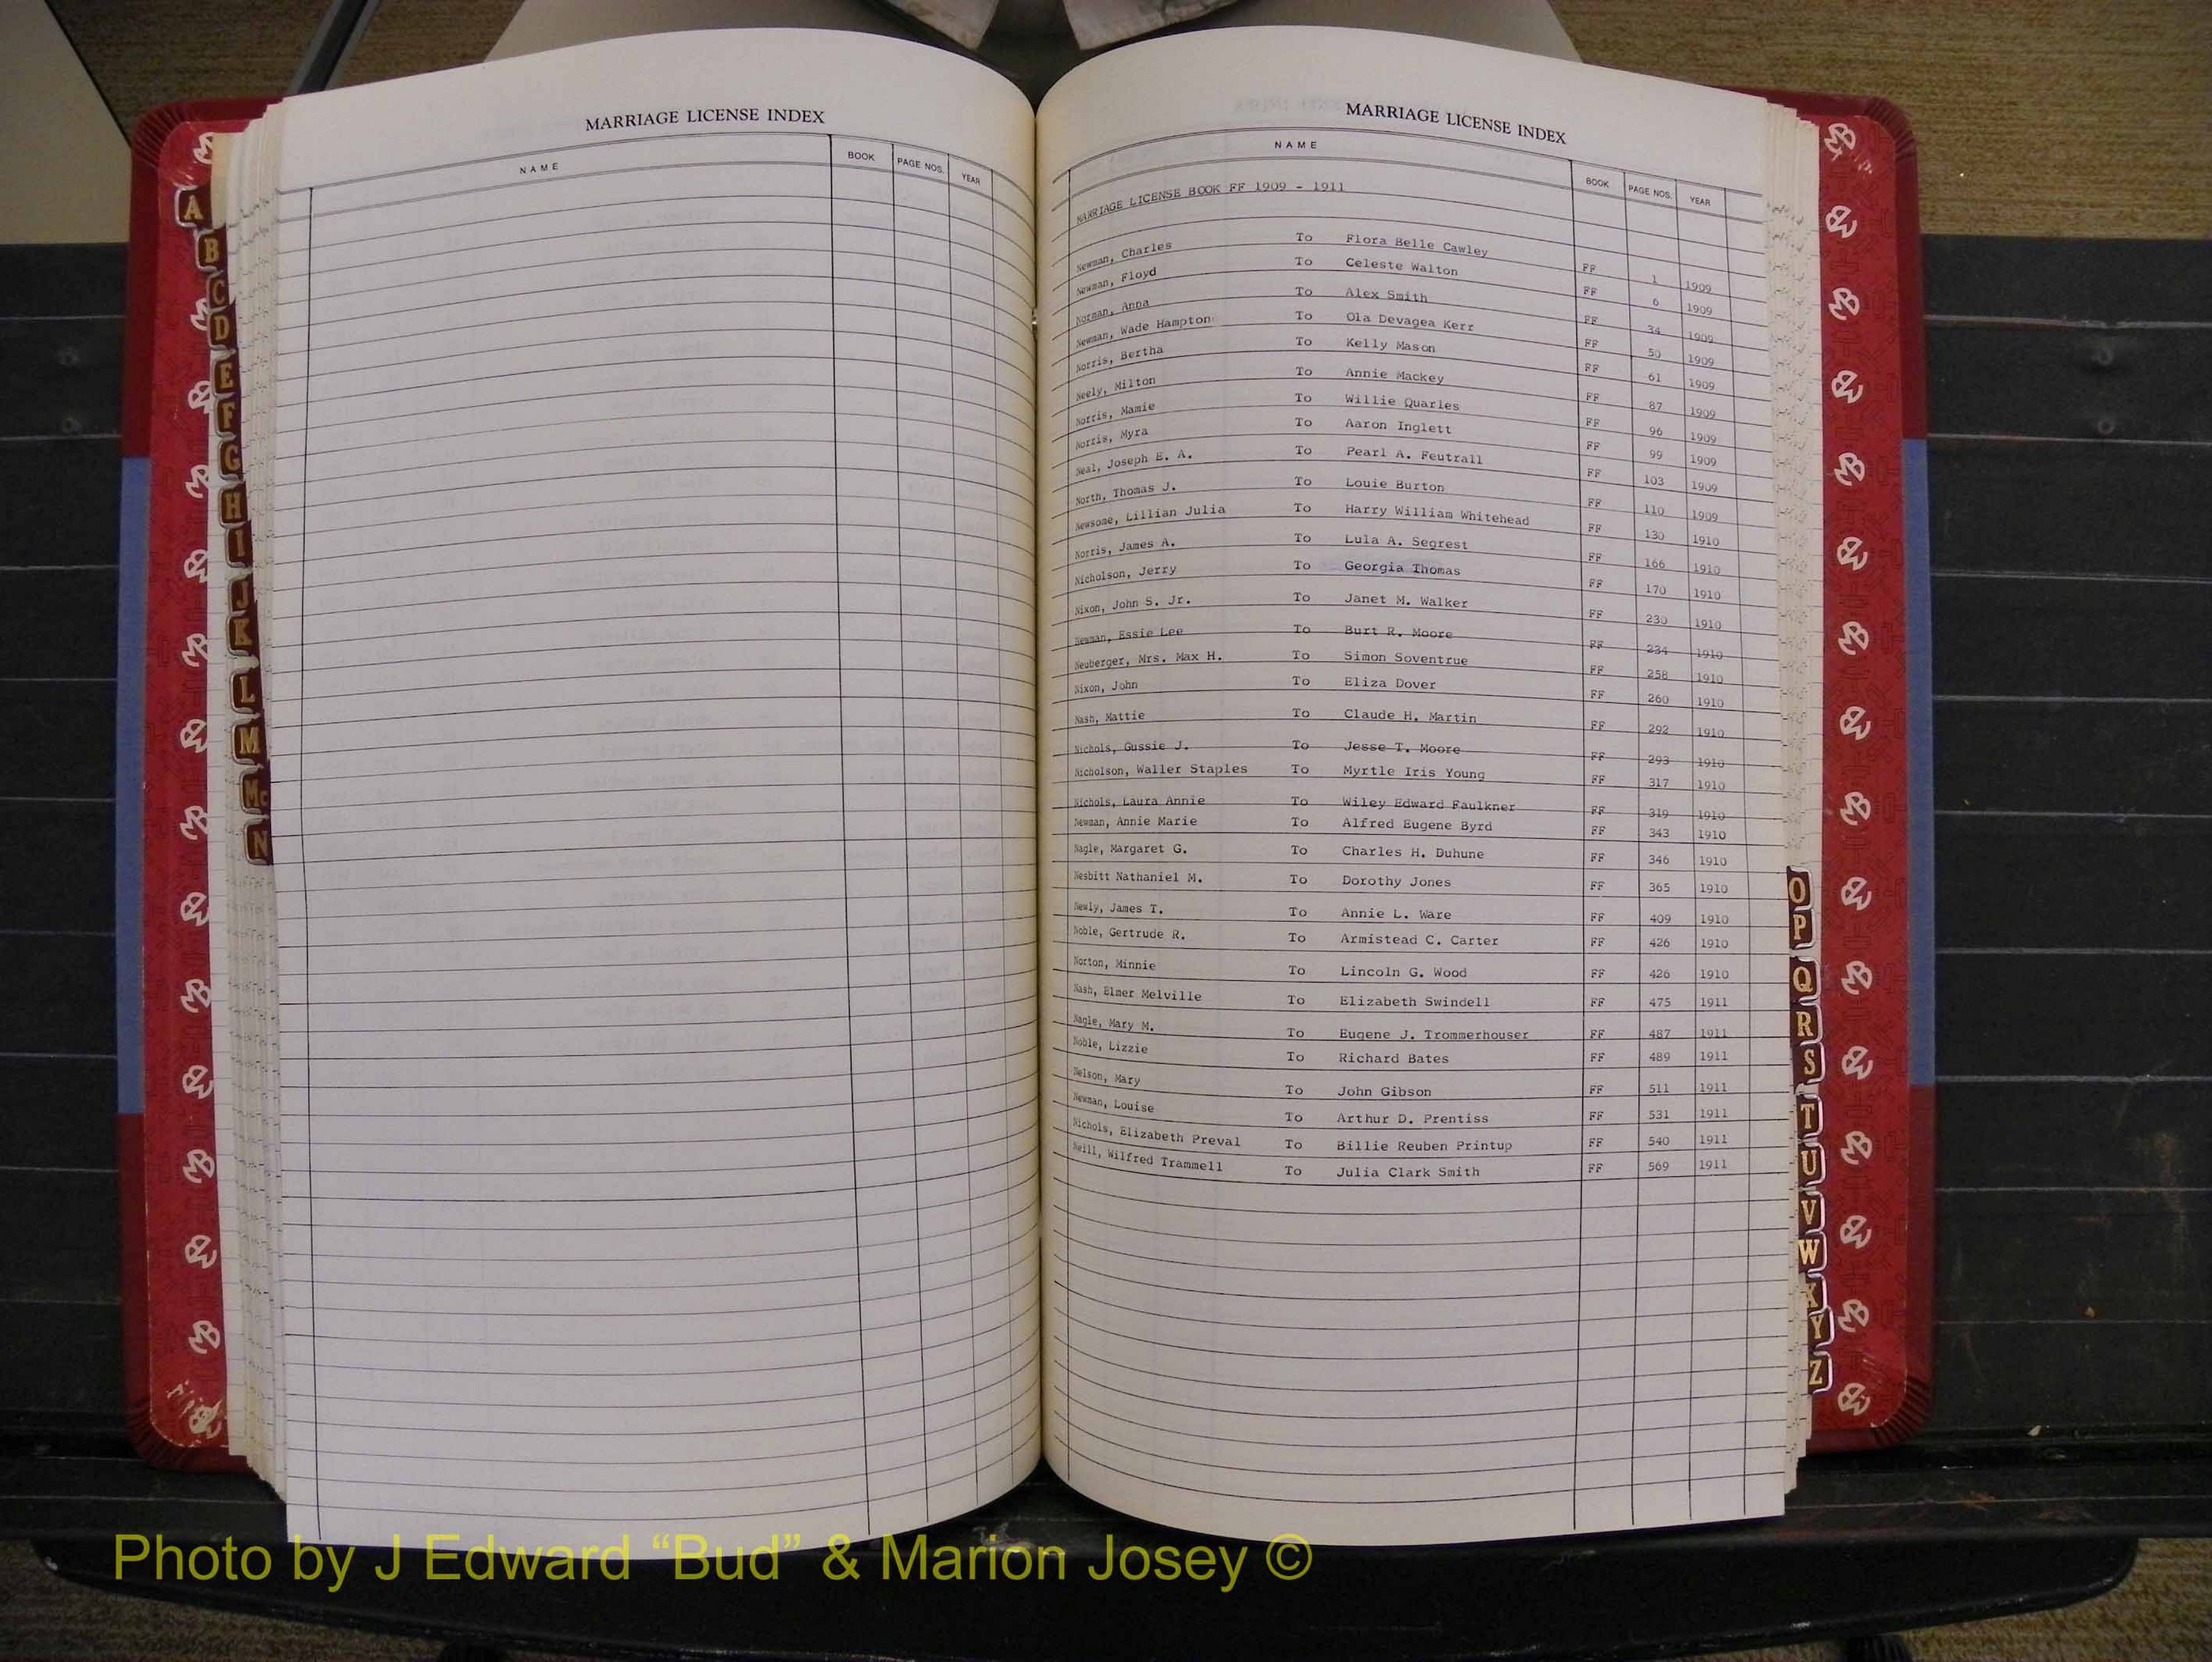 MARRIAGE LICENSE INDEX
NAME BOOK PAGE NOS. YEAR
A
B
C
D
E
F
G
H
I
J
K
L
M
Mc
N
MARRIAGE LICENSE INDEX
NAME BOOK PAGE NOS. YEAR
MARRIAGE LICENSE BOOK FF 1909 - 1911
Newman, Charles To Flora Belle Cawley FF 1 1909
Newman, Floyd To Celeste Walton FF 6 1909
Norman, Anna To Alex Smith FF 34 1909
Newman, Wade Hampton To Ola Devagea Kerr FF 50 1909
Norris, Bertha To Kelly Mason FF 61 1909
Neely, Milton To Annie Mackey FF 87 1909
Norris, Mamie To Willie Quarles FF 96 1909
Norris, Myra To Aaron Inglett FF 99 1909
Neal, Joseph E. A. To Pearl A. Feutrall FF 103 1909
North, Thomas J. To Louie Burton FF 110 1909
Newsome, Lillian Julia To Harry William Whitehead FF 130 1910
Norris, James A. To Lula A. Segrest FF 166 1910
Nicholson, Jerry To Georgia Thomas FF 170 1910
Nixon, John S. Jr. To Janet M. Walker FF 230 1910
Newman, Essie Lee To Burt R. Moore FF 234 1910
Neuberger, Mrs. Max H. To Simon Soventrue FF 258 1910
Nixon, John To Eliza Dover FF 260 1910
Nash, Mattie To Claude H. Martin FF 292 1910
Nichols, Gussie J. To Jesse T. Moore FF 293 1910
Nicholson, Waller Staples To Myrtle Iris Young FF 317 1910
Nichols, Laura Annie To Wiley Edward Faulkner FF 319 1910
Newman, Annie Marie To Alfred Eugene Byrd FF 343 1910
Nagle, Margaret G. To Charles H. Duhune FF 346 1910
Nesbitt Nathaniel M. To Dorothy Jones FF 365 1910
Newly, James T. To Annie L. Ware FF 409 1910
Noble, Gertrude R. To Armistead C. Carter FF 426 1910
Norton, Minnie To Lincoln G. Wood FF 426 1910
Nash, Elmer Melville To Elizabeth Swindell FF 475 1911
Nagle, Mary M. To Eugene J. Trommerhouser FF 487 1911
Noble, Lizzie To Richard Bates FF 489 1911
Nelson, Mary To John Gibson FF 511 1911
Newman, Louise To Arthur D. Prentiss FF 531 1911
Nichols, Elizabeth Preval To Billie Reuben Printup FF 540 1911
Neill, Wilfred Trammell To Julia Clark Smith FF 569 1911
O
P
Q
R
S
T
U
V
W
X
Y
Z
Photo by J Edward “Bud” & Marion Josey ©